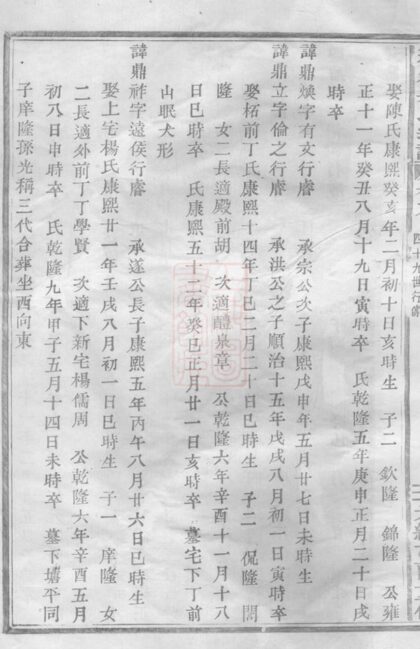 娶陳氏康熙癸亥年二月初十日亥時生　子二　欽隆　錦隆　公雍
正十一年癸丑八月十九日寅時卒　氏乾隆五年庚申正月二十日戌
時卒
諱鼎煥字有文行睿　承宗公次子康熙戊申年五月廿七日未時生
諱鼎立字倫之行睿　承洪公之子順治十五年戊戌八月初一日寅時卒
娶柘前丁氏康熙十四年丁巳二月二十日巳時生　子二　侃隆　誾
隆　女二長適殿前胡　次適醴泉章　公乾隆六年辛酉十一月十八
日巳時卒　氏康熙五十二年癸巳正月廿一日亥時卒　墓宅下丁前
山眠犬形
諱鼎祚字遠侯行睿　承遂公長子康熙五年丙午八月廿六日巳時生
娶上宅楊氏康熙廿一年壬戌八月初一日巳時生　子一　庠隆　女
二長適外前丁丁學賢　次適下新宅楊儒周　公乾隆六年辛酉五月
初八日申時卒　氏乾隆九年甲子五月十四日未時卒　墓下塘平同
子庠隆孫光稱三代合葬坐酉向東